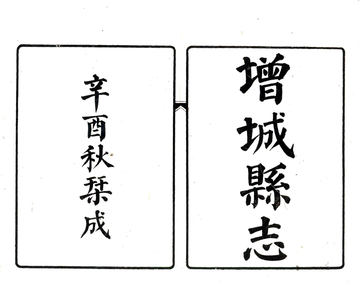 增城縣志
辛酉秋栞成